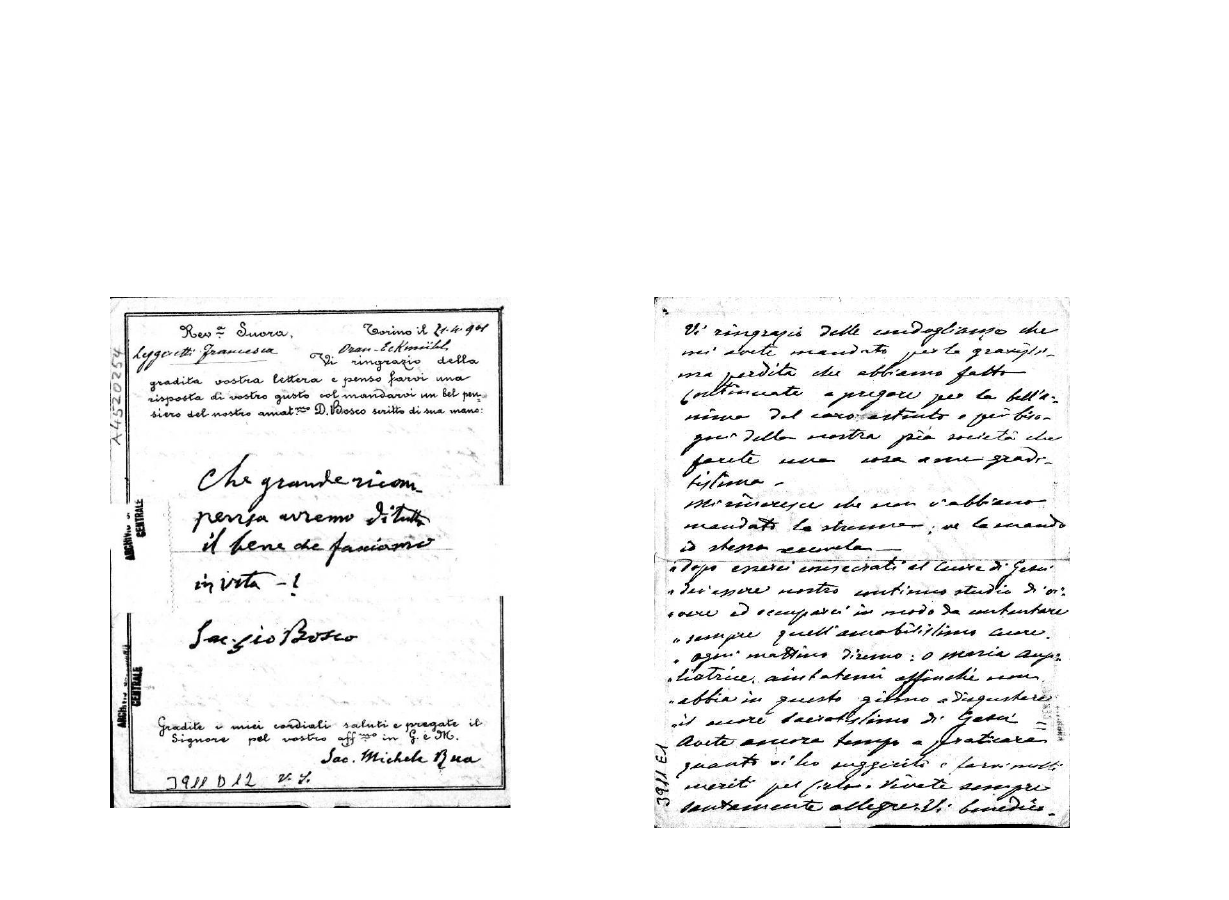 Rev.ª Suora,
Torino il 21-4-901
Leggeretti Francesca
Oran-Eckmühl
Vi ringrazio della
gradita vostra lettera e penso farvi una
risposta di vostro gusto col mandarvi un bel pen-
siero del nostro amat.mo D. Bosco scritto di sua mano:
Che grande ricom-
pensa avremo di tutto
il bene che facciamo
in vita - !
Sac. Gio Bosco
Gradite i miei cordiali saluti e pregate il
Signore pel vostro aff.mo in G. e M.
Sac. Michele Rua
3911 D 12 V. S.
A4520254
ARCHIVIO
CENTRALE
ARCHIVIO
CENTRALE
Vi ringrazio delle condoglianze che
mi avete mandato per la gravissi-
ma perdita che abbiamo fatto
Continuate a pregare per la bell'a-
nima del caro estinto e pei biso-
gni della nostra pia società che
farete una cosa a me gradi-
tissima -
Mi rincresce che non v'abbiano
mandato la strenna; ve la mando
io stesso
"Dopo esserci consecrati al Cuore di Gesù
"dev'essere nostro continuo studio di vi-
"vere ed occuparci in modo da contentare
"sempre quell'amabilissimo cuore.
"Ogni mattino diremo: o Maria Ausi-
"liatrice, aiutatemi affinché non
"abbia in questo giorno a disgustare
"il cuore Sacratissimo di Gesù
Avete ancora tempo a praticare
quanto vi ho suggerito e farvi molti
meriti pel Cielo. Vivete sempre
santamente allegre. Vi benedico.
3911 E1